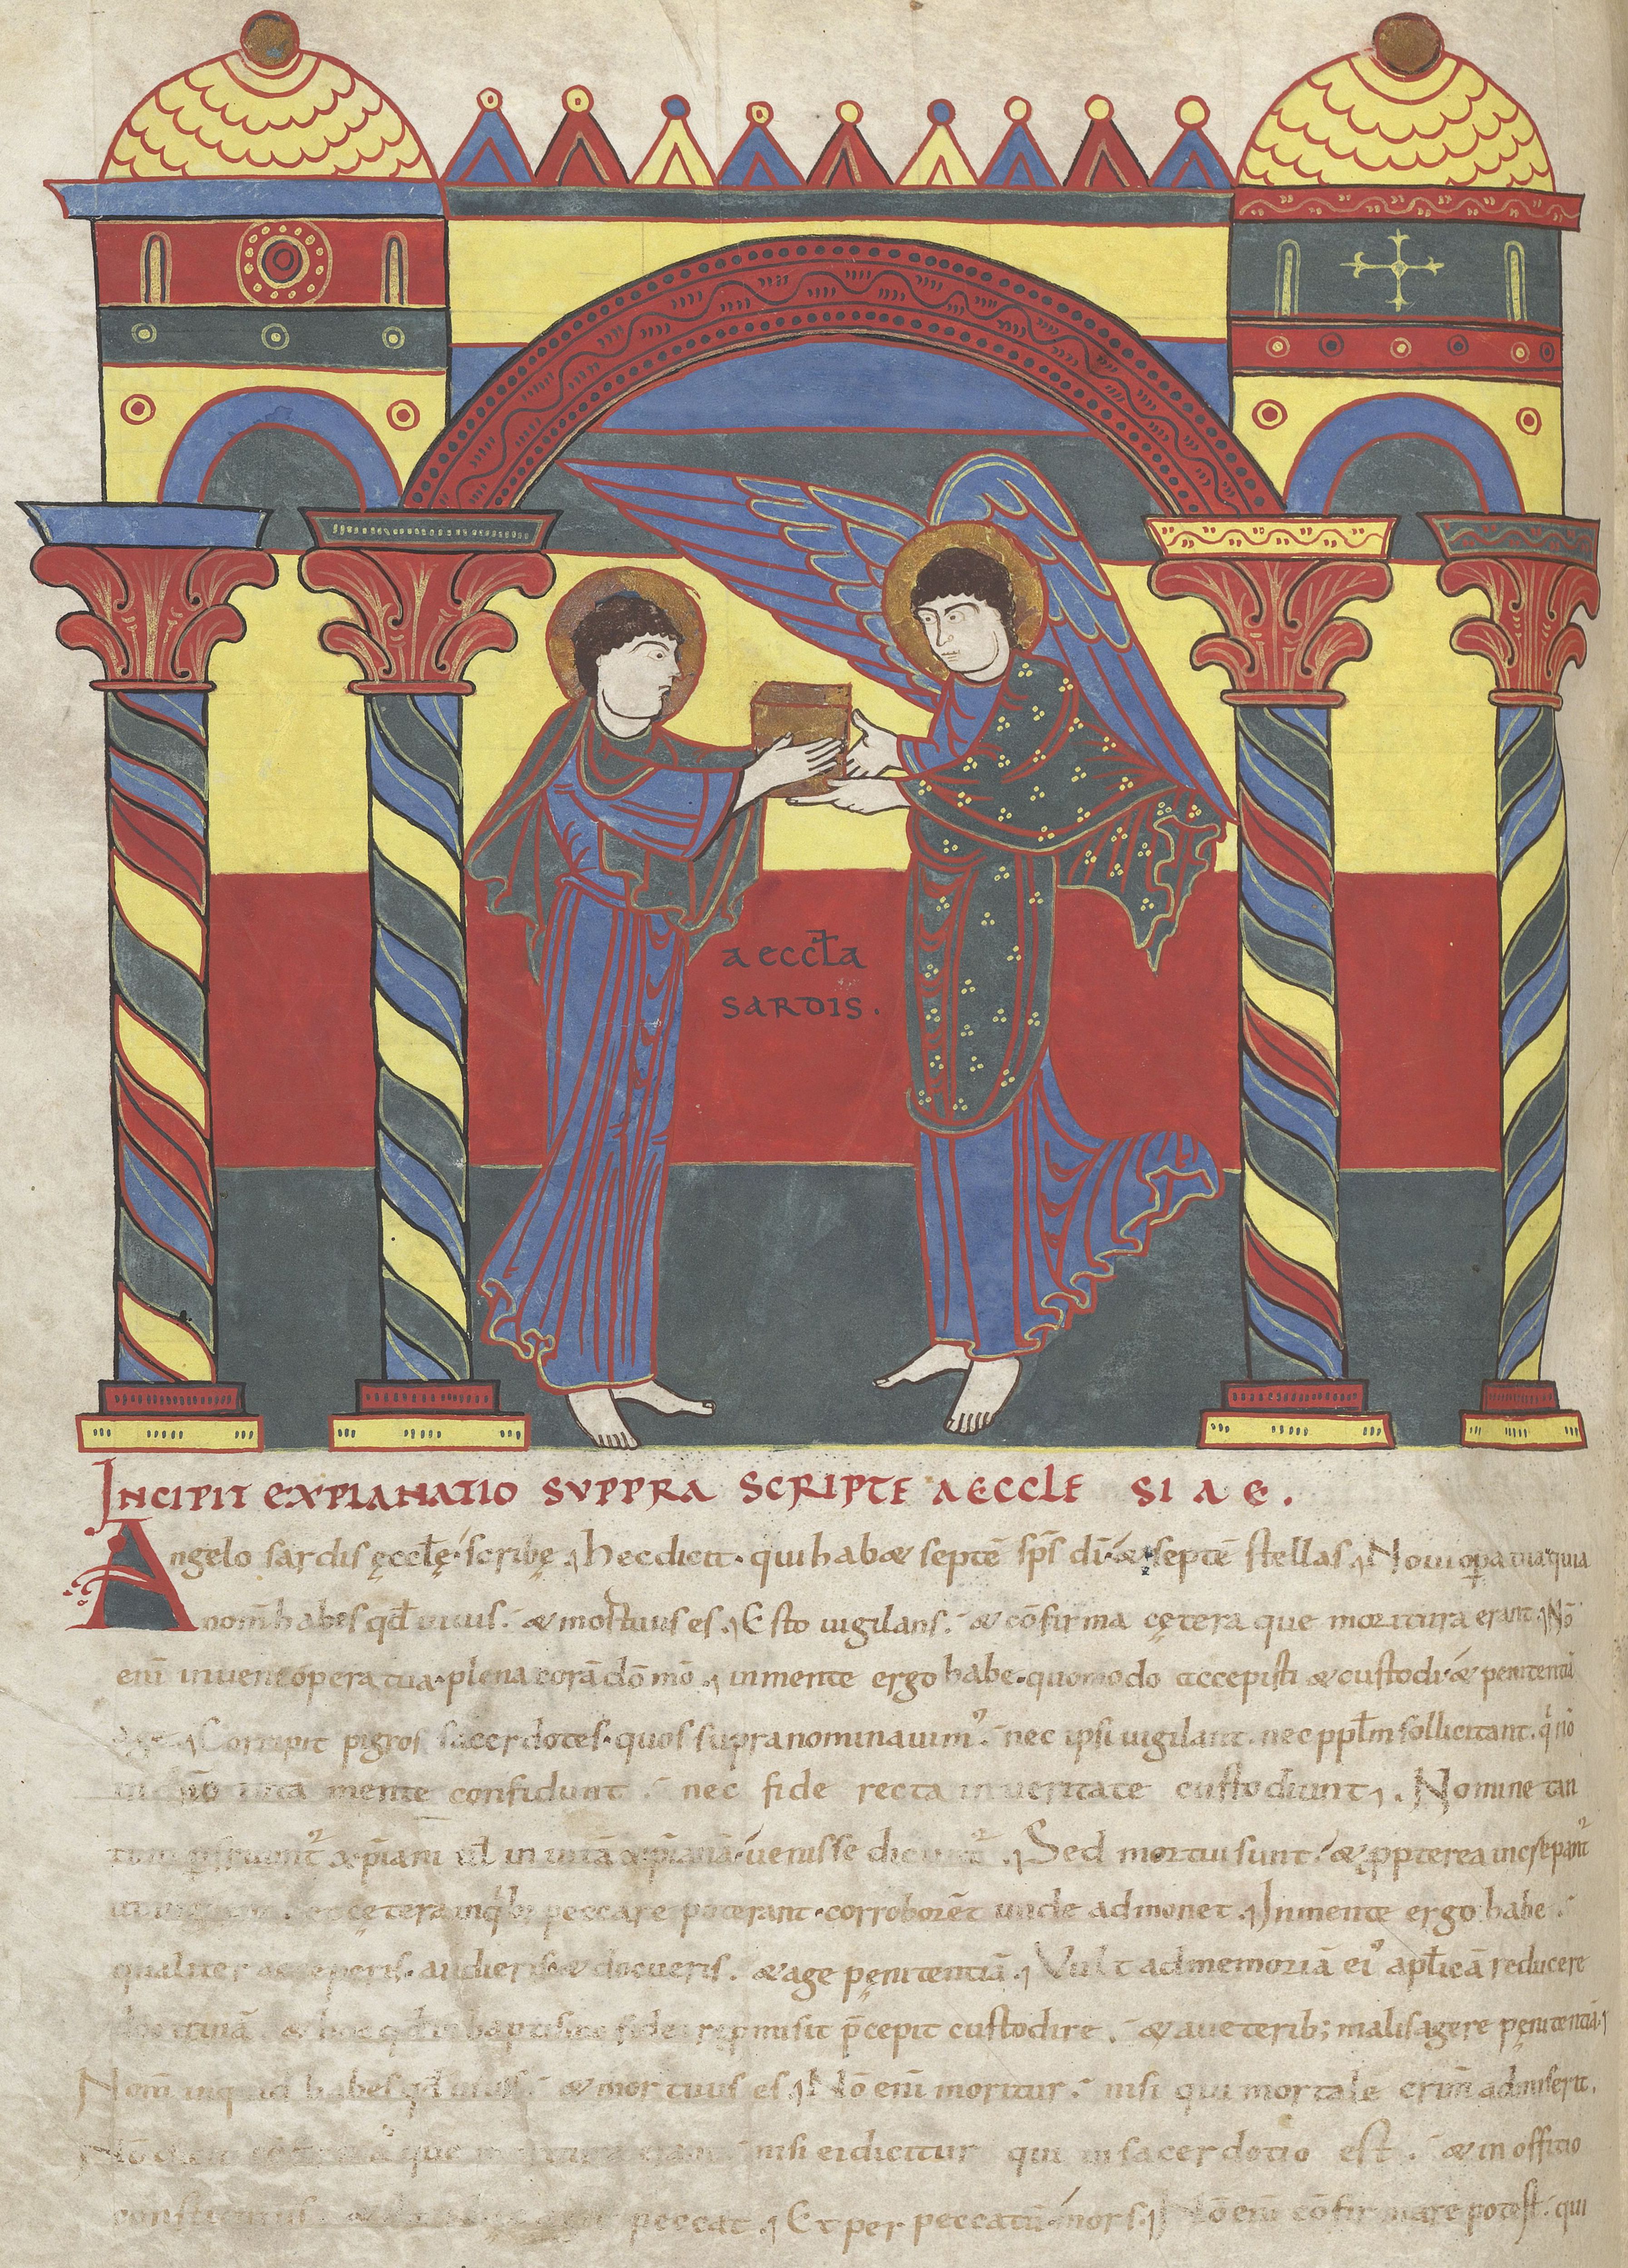 aeccła
SARDIS.
INCIPIT EXPLANATIO SUPPRA SCRIPTE AECCLE SIAE.
Angelo sardis ęccłę scribę hec dicit · qui habæ septē sp̄s dī · & septē stellas Noui opa tua quia
nom̄ habes qđ uiuus & mortuus es Esto uigilans & cōfirma cętera que moritura erant Nō
enī inueni opera tua plena corā dō mō in mente ergo habe quomodo accepisti & custodi & penitentiā
age Corripit pigros sacerdotes · quos supranominauim᾽ nec ipsi uigilant nec ppłm sollicitant q̄ nō
mente confidunt nec fide recta in ueritate custodiunt. Nomine tan
tum uenisse dicunt᾽ Sed mortui sunt & ppterea increpant᾽
cętera inqb; peccare poterant · corroborēt unde admonet Inmente ergo habe
qualiter acceperis · audieris & docueris. & age pęnitentiā Vult ad memoriā ei᾽ apłicā reducere
doctrinā misit p̄cepit custodire. & a ueterib; malis agere pęnitentiā
Nom̄ inquid habes qđ uiuus & mortuus es Nō enī moritur nisi qui mortale crim̄ admiserit.
que moritura erant nisi ei dicitur qui in sacerdotio est & in offitio
peccat Et per peccatū mors Nō enī cōfirmare potest qui